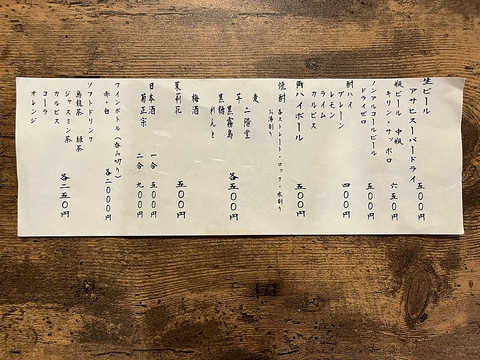 生ビール
アサヒスーパードライ 五〇〇円
瓶ビール 中瓶
キリン・サッポロ 六五〇円
ノンアルコールビール
ドライゼロ 五〇〇円
酎ハイ
プレーン
レモン
ライム
カルピス 四〇〇円
角ハイボール 五〇〇円
焼酎 各ストレート・ロック・水割り
お湯割り
麦 二階堂
芋 黒霧島
黒糖 れんと 各五〇〇円
梅酒
茉莉花 五〇〇円
日本酒
菊正宗 一合 五〇〇円
二合 九〇〇円
ワインボトル(呑み切り)
赤・白 各二〇〇〇円
ソフトドリンク
烏龍茶 緑茶
ジャスミン茶
カルピス
コーラ
オレンジ 各二五〇円